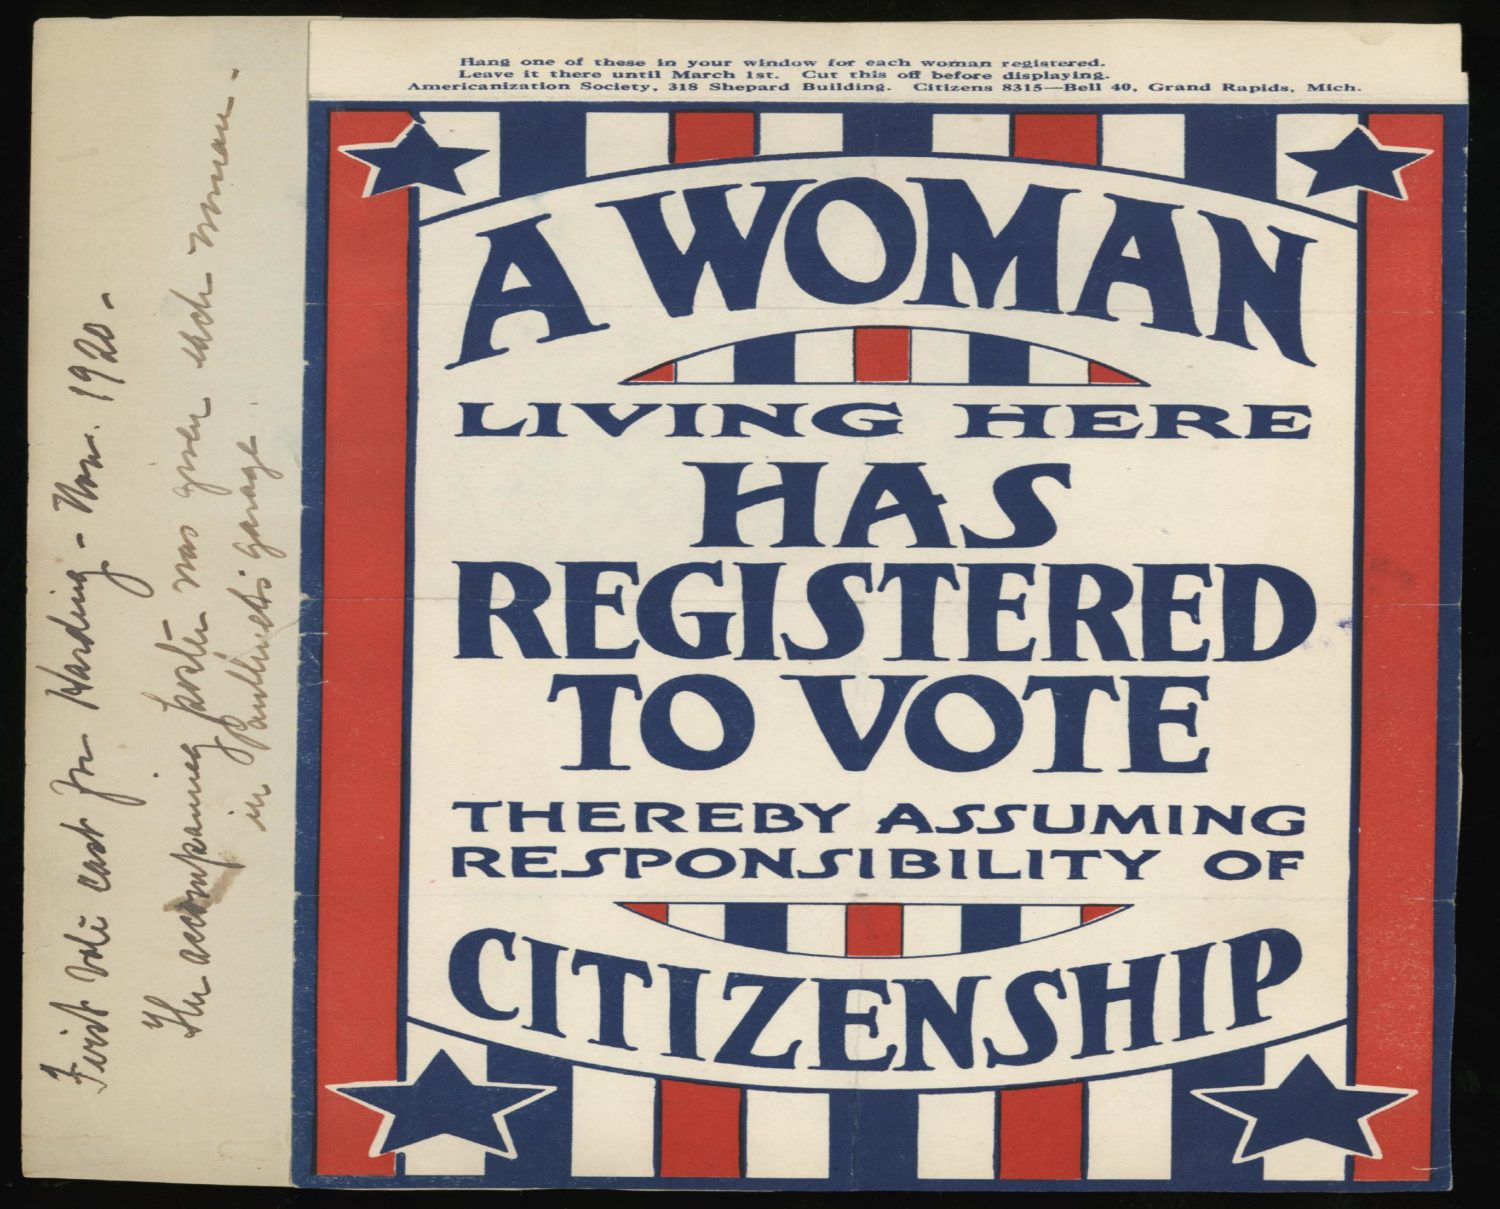 Hang one of these in your window for each woman registered.
Leave it there until March 1st. Cut this off before displaying.
Americanization Society, 318 Shepard Building. Citizens 8315—Bell 40, Grand Rapids, Mich.
A WOMAN
LIVING HERE
HAS
REGISTERED
TO VOTE
THEREBY ASSUMING
RESPONSIBILITY OF
CITIZENSHIP
First vote cast for Harding - Nov. 1920 -
The accompanying poster was given each woman -
in garage.